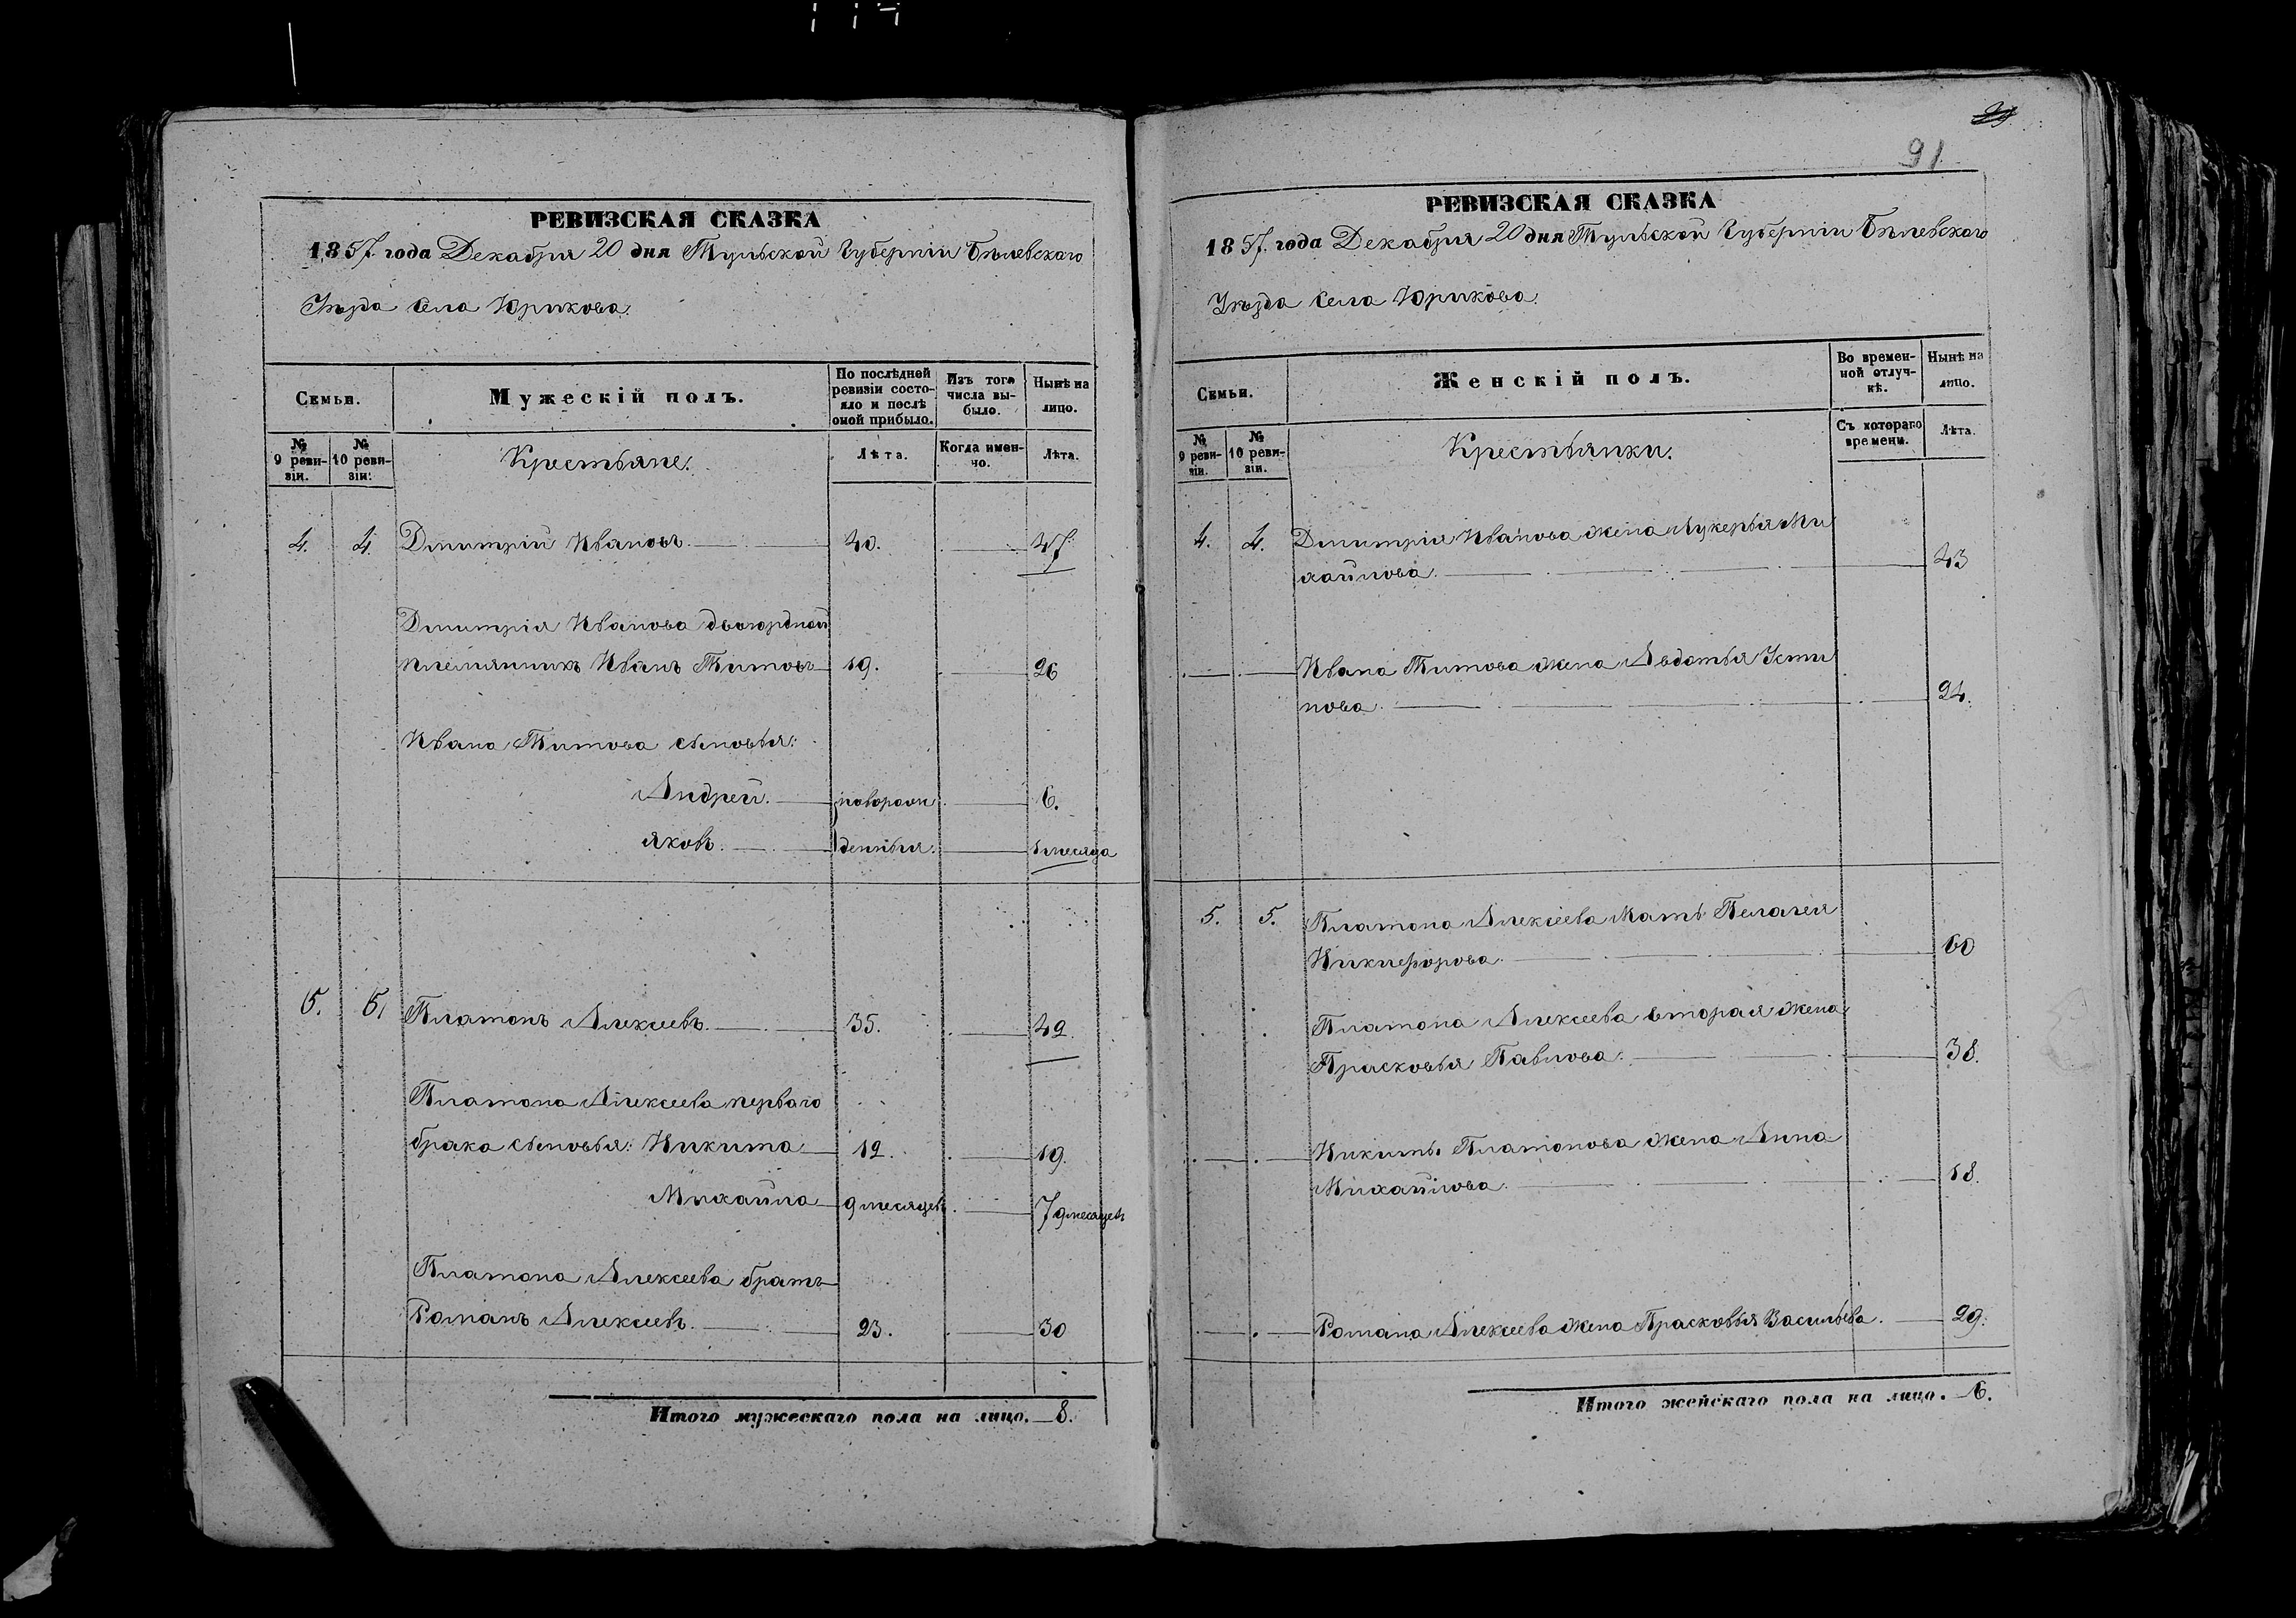 РЕВИЗСКАЯ СКАЗКА
1857. года Декабря 20 дня Тульской Губерніи Бѣлевскаго
Уѣзда Села Юрикова.
Семьи.
Мужескій полъ.
По послѣдней ревизіи состояло и послѣ оной прибыло.
Изъ того числа выбыло.
Нынѣ на лицо.
№ 9 ревизіи.
№ 10 ревизіи.
Крестьяне.
Лѣта.
Когда именно.
Лѣта.
4. 4. Дмитрій Ивановъ. 40. 47
Дмитрія Иванова двоюрдной
племянникъ Иванъ Титовъ 19. 26
Ивана Титова сыновья:
Андрей. новорожн 6.
Яковъ. денныя. месяца
5. 5. Платонъ Алексеевъ. 35. 42.
Платона Алексеева перваго
брака сыновья: Никита 12. 19.
Михайла 9 месяцевъ. 7 9 месяцевъ
Платона Алексеева братъ
Романъ Алексеевъ. 23. 30
Итого мужескаго пола на лицо. 8.
91
РЕВИЗСКАЯ СКАЗКА
1857. года Декабря 20 дня Тульской Губерніи Бѣлевскаго
Уѣзда Села Юрикова.
Семьи.
Женскій полъ.
Во временной отлучкѣ.
Нынѣ на лицо.
№ 9 ревизіи.
№ 10 ревизіи.
Крестьянки.
Съ котораго времени.
Лѣта.
4. 4. Дмитрія Иванова жена Лукерья Ми
хайлова. 43
Ивана Титова жена Авдотья Усти
нова. 24.
5. 5. Платона Алексеева Мать Пелагея
Никиефорова. 60
Платона Алексеева вторая жена
Прасковья Павлова. 38.
Никиты Платонова жена Анна
Михайлова. 18.
Романа Алексеева жена Прасковья Васильева. 29.
Итого женскаго пола на лицо. 6.